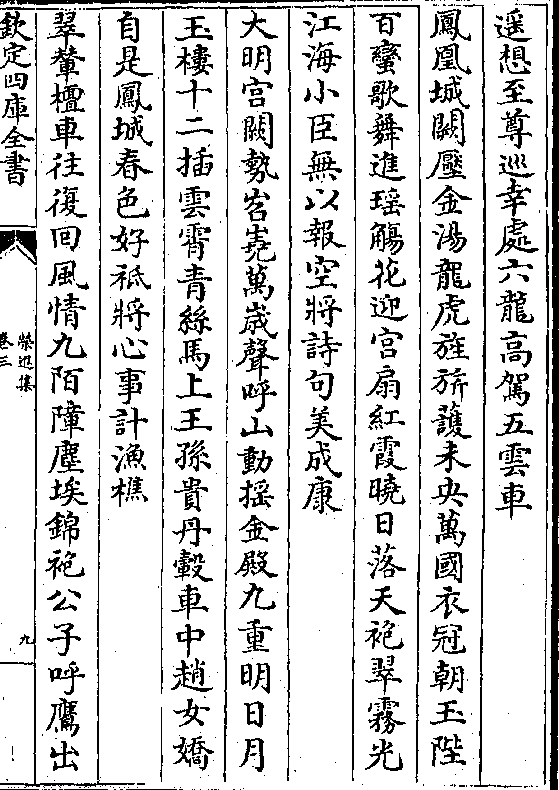 遥想至尊巡幸處六龍高駕五雲車
鳳凰城闕壓金湯龍虎旌旂護未央萬國衣冠朝玉陛
百蠻歌舞進瑶觴花迎宫扇紅霞曉日落天袍翠霧光
江海小臣無以報空將詩句美成康
大明宫闕勢岧嶤萬歲聲呼山動揺金殿九重明日月
玉樓十二插雲霄青絲馬上王孫貴丹轂車中趙女嬌
自是鳳城春色好祗將心事計漁樵
翠輦檀車往復回風情九陌障塵埃錦袍公子呼鷹出
欽定四庫全書
榮進集
卷三
九